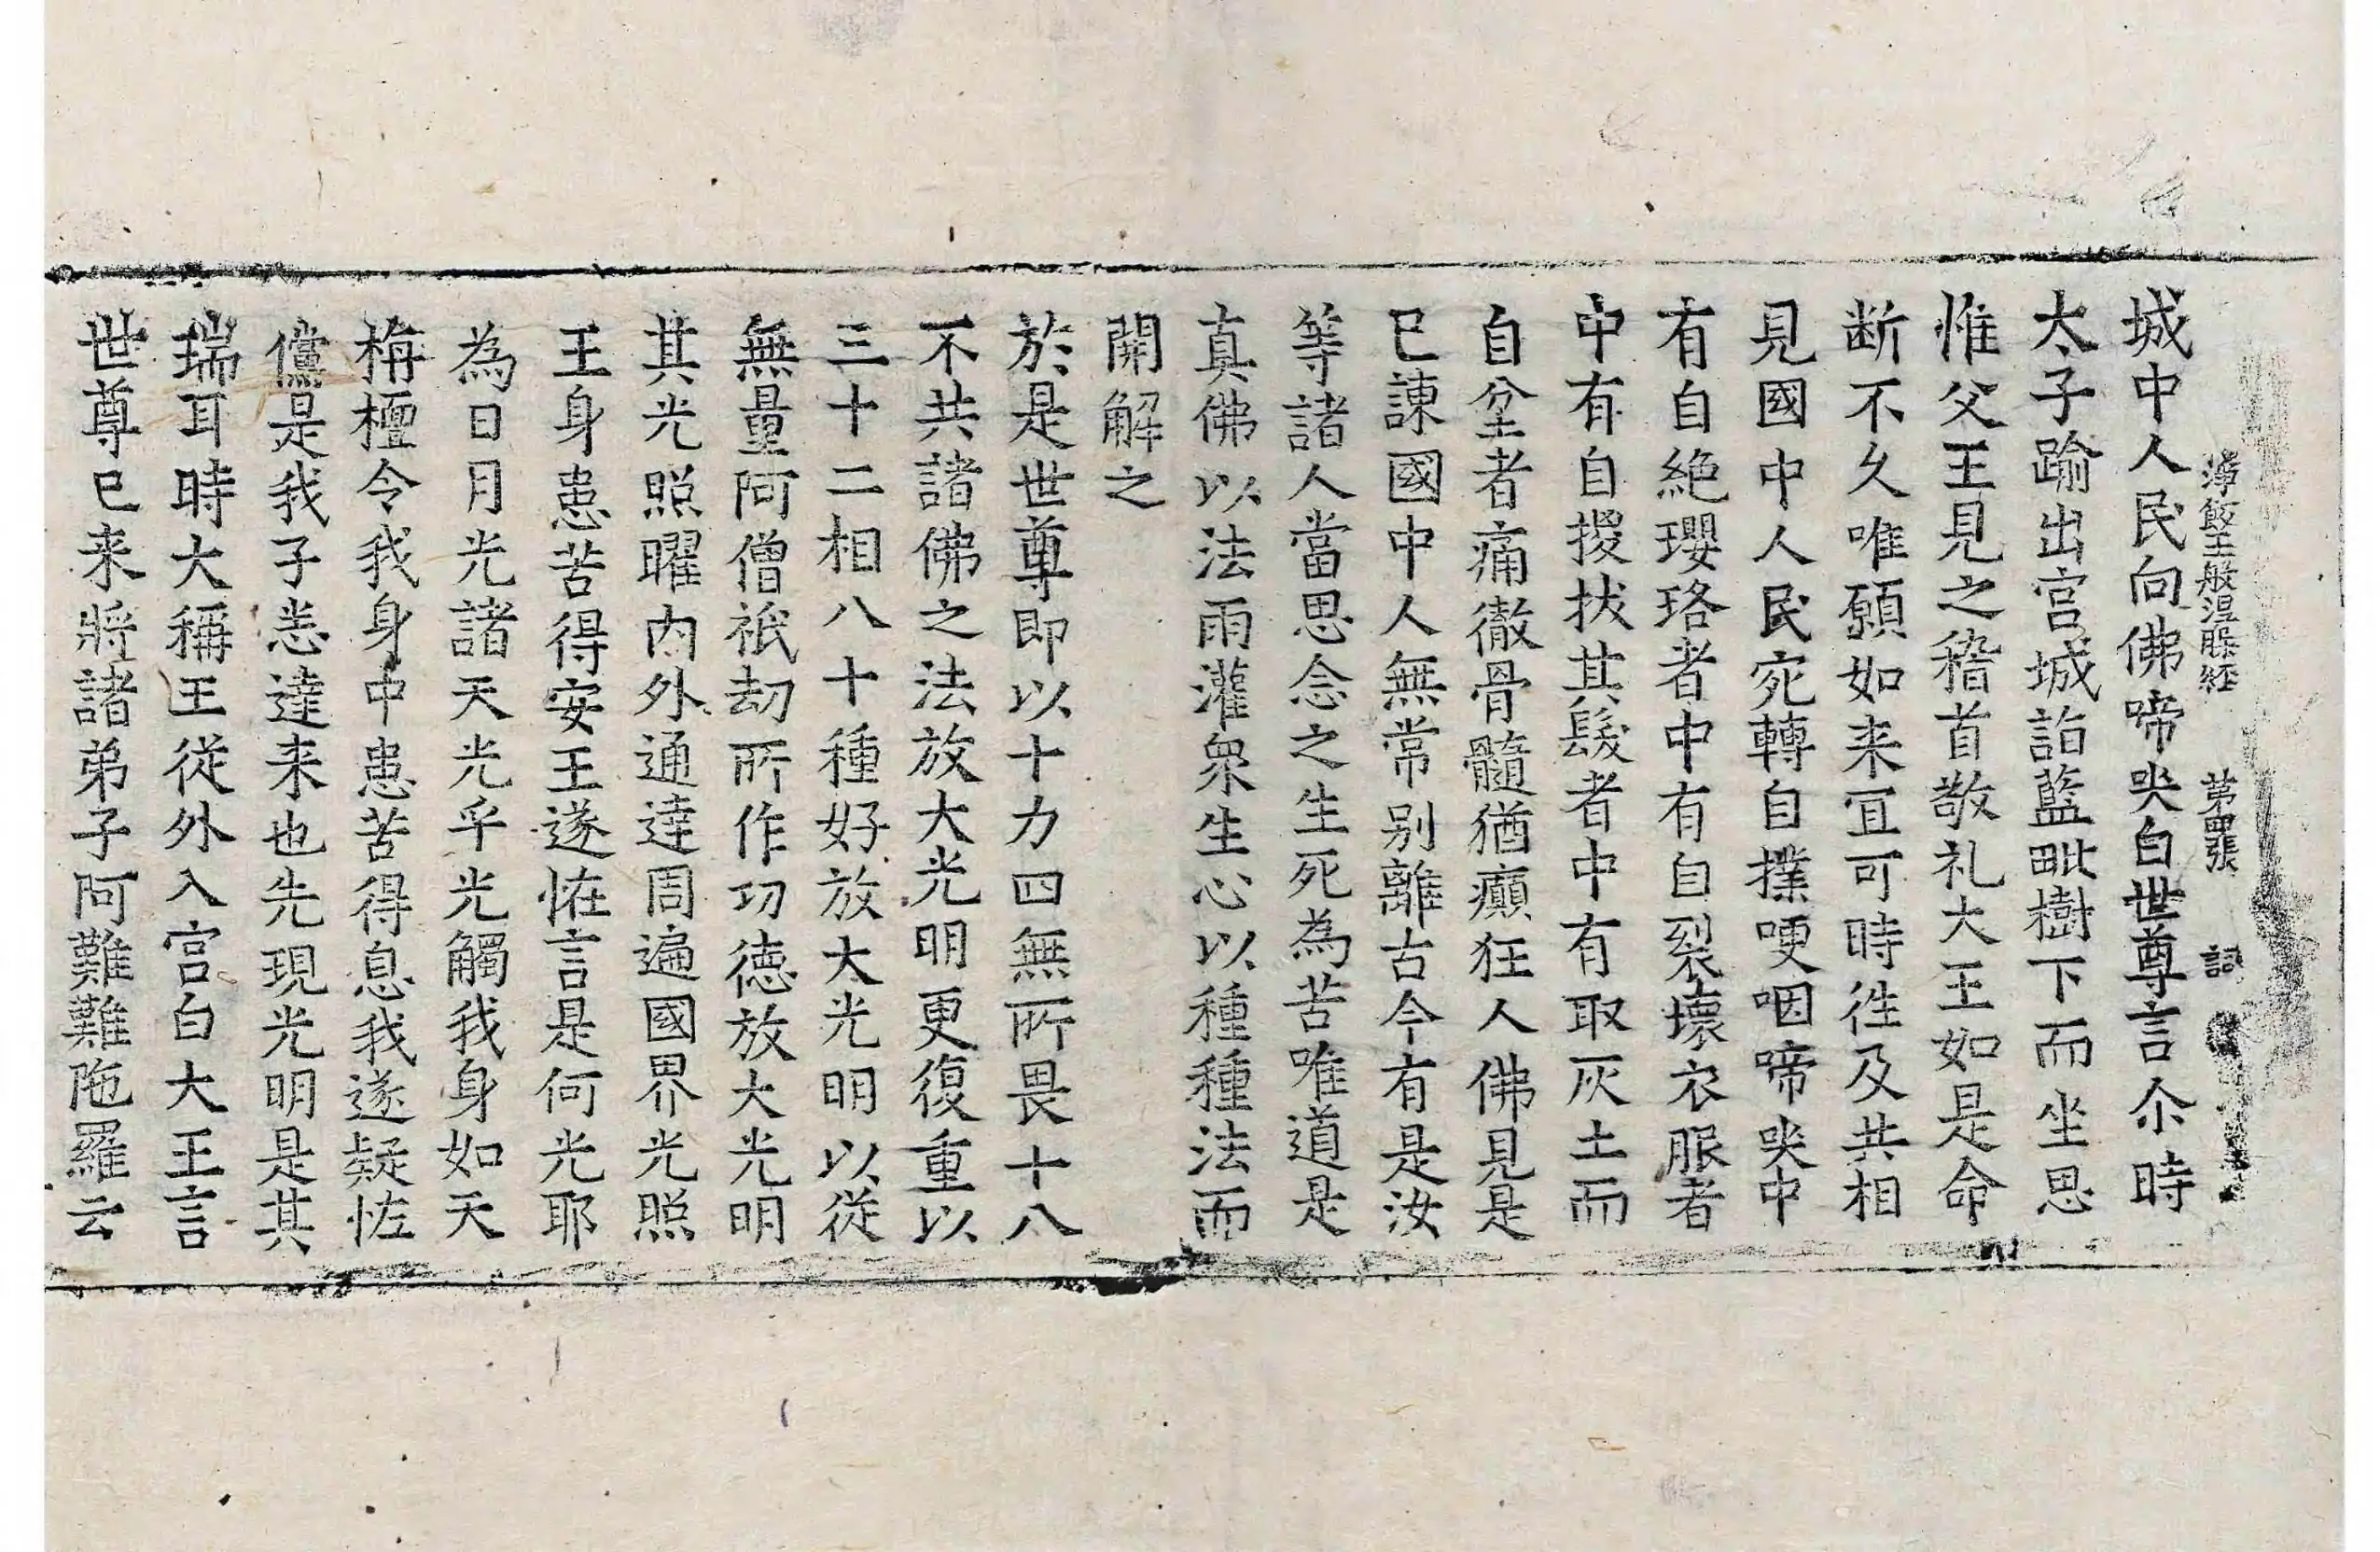 淨飯王般涅槃経 第四張 詞
城中人民向佛啼哭白世尊言尒時
太子踰出宫城詣藍毗樹下而坐思
惟父王見之稽首敬礼大王如是命
断不久唯願如来冝可時徃及共相
見國中人民宛轉自撲哽咽啼哭中
有自絶瓔珞者中有自裂壞衣服者
中有自揬拔其髮者中有取灰土而
自坌者痛徹骨髓猶癲狂人佛見是
已諌國中人無常别離古今有是汝
等諸人當思念之生死為苦唯道是
真佛以法雨灌衆生心以種種法而
開解之
於是世尊即以十力四無所畏十八
不共諸佛之法放大光明更復重以
三十二相八十種好放大光明以從
無量阿僧祇劫所作功徳放大光明
其光照曜内外通達周遍國界光照
王身患苦得安王遂恠言是何光耶
為日月光諸天光乎光觸我身如天
栴檀令我身中患苦得息我遂疑恠
儻是我子悉達来也先現光明是其
瑞耳時大稱王從外入宫白大王言
世尊已来將諸弟子阿難難陁羅云